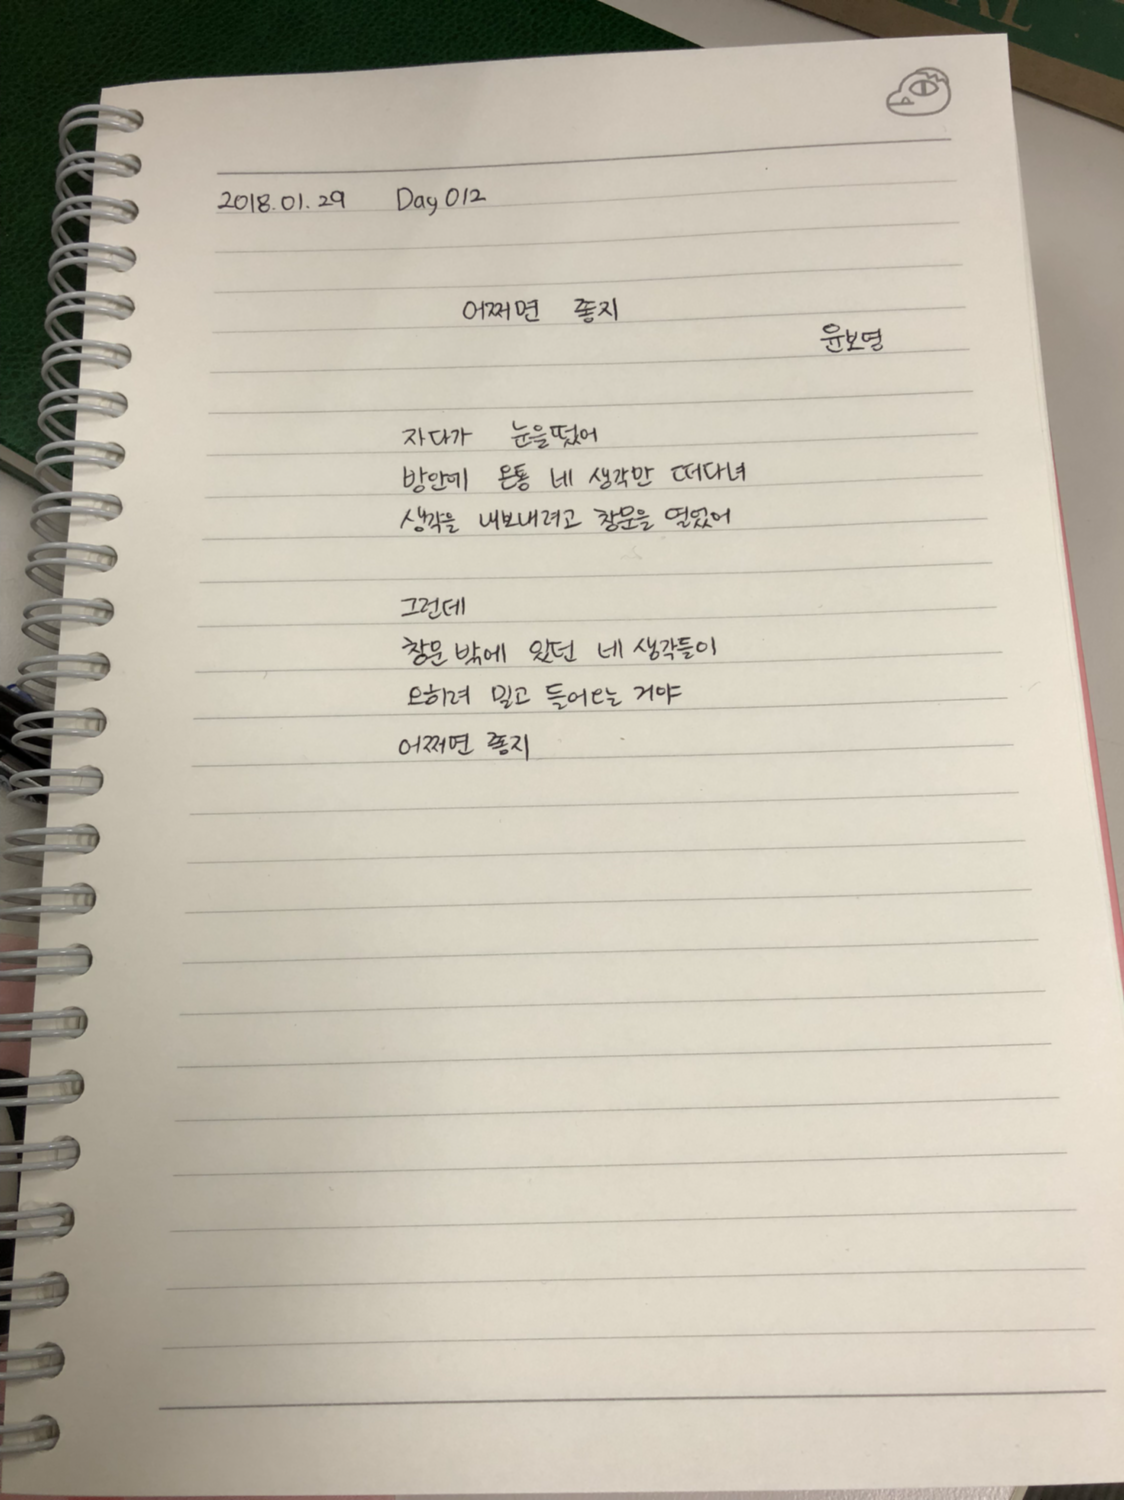 2018.01.29 Day 012
어쩌면 좋지
윤보영
자다가 눈을 떴어
방안에 온통 네 생각만 떠다녀
생각을 내보내려고 창문을 열었어
그런데
창문 밖에 있던 네 생각들이
오히려 밀고 들어오는 거야
어쩌면 좋지